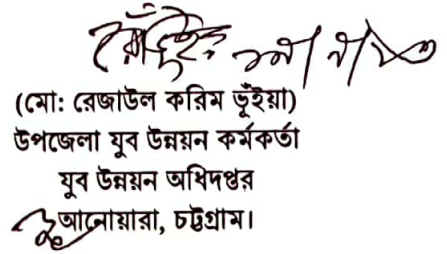 (মো: রেজাউল করিম ভূঁইয়া)
উপজেলা যুব উন্নয়ন কর্মকর্তা
যুব উন্নয়ন অধিদপ্তর
আনোয়ারা, চট্টগ্রাম।